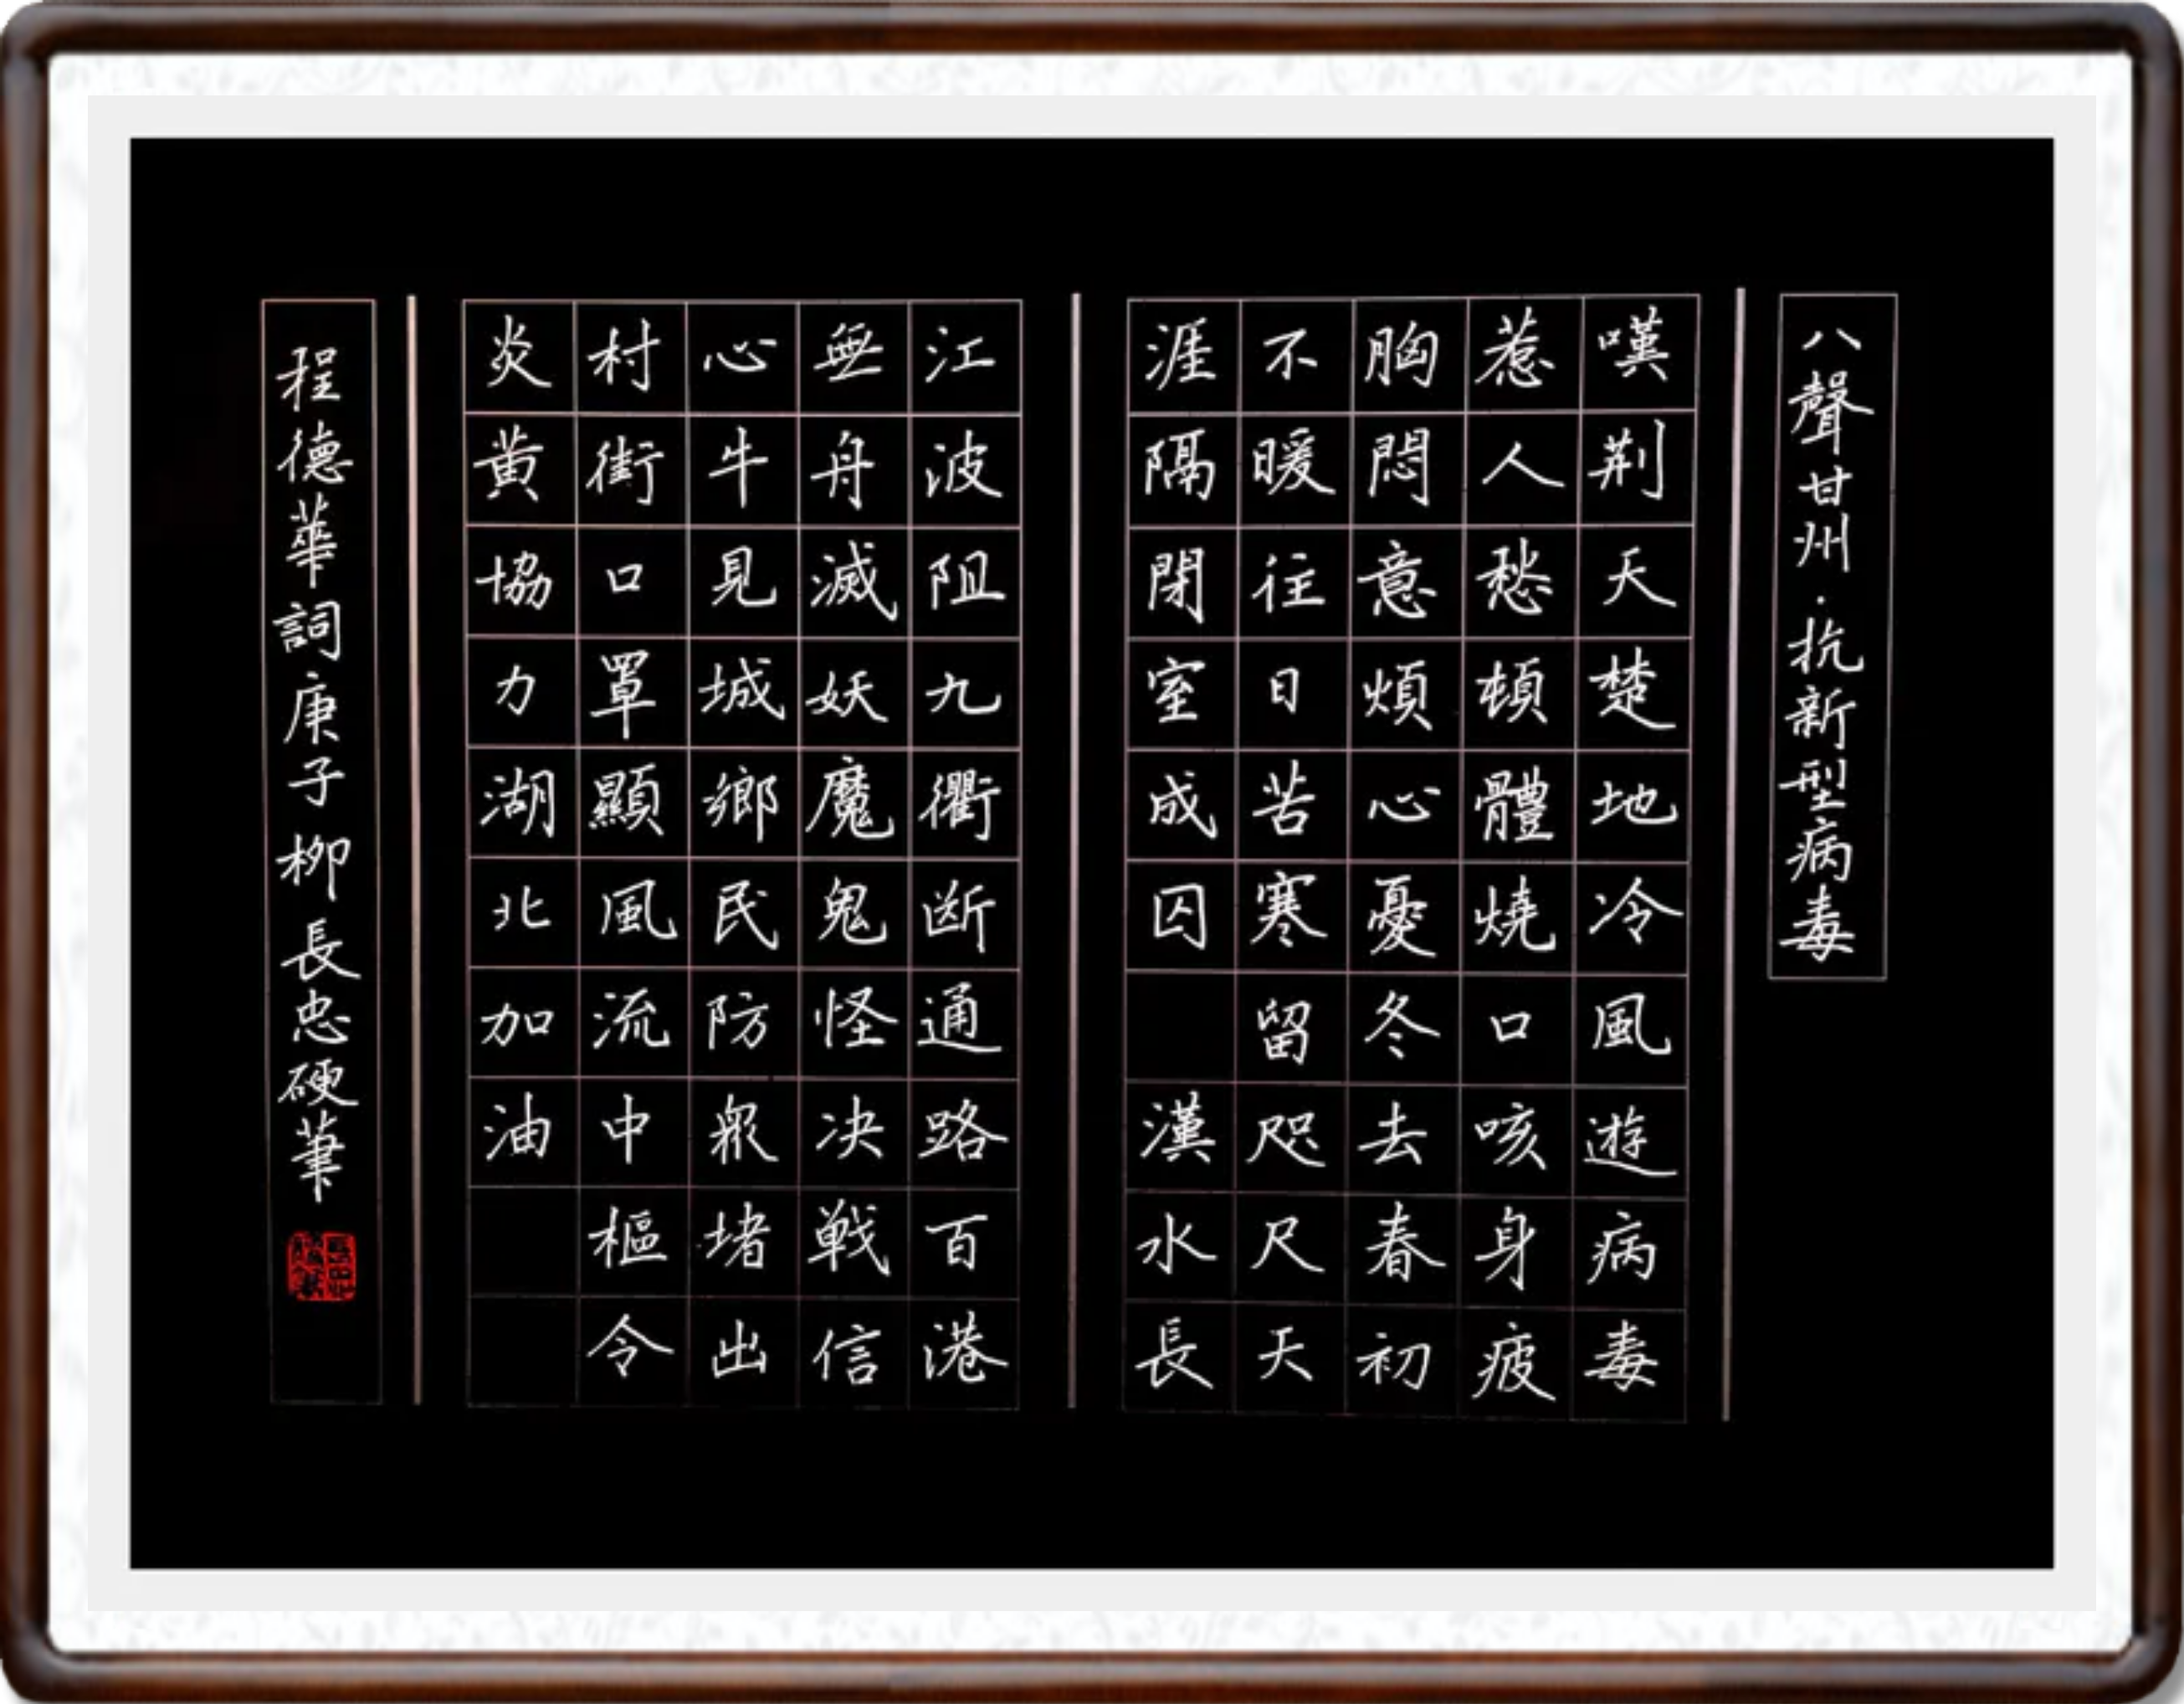 八聲甘州·抗新型病毒
嘆荆天楚地冷風遊病毒
惹人愁頓體燒口咳身疲
胸悶意煩心憂冬去春初
不暖往日苦寒留咫尺天
涯隔閉室成囚 漢水長
江波阻九衢断通路百港
無舟滅妖魔鬼怪决戦信
心牛見城鄉民防衆堵出
村街口罩顯風流中樞令
炎黄協力湖北加油
程德華詞庚子柳長忠硬筆